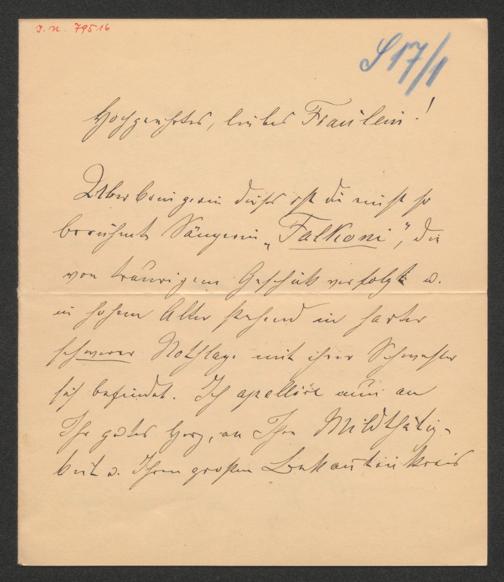 I. N. 79516
S 17/1
Hochgeehrtes, liebes Fräulein!
dieses ist die einst so
berühmte Sängerin „Falkoni", die
von traurigem Geschick verfolgt u.
in hohem Alter stehend in harter
schwerer Nothlage mit ihrer Schwester
sich befindet. Ich apellire nun an
Ihr gutes Herz, an Ihre Mildthätig-
keit u. Ihren großen Bekanntenkreis